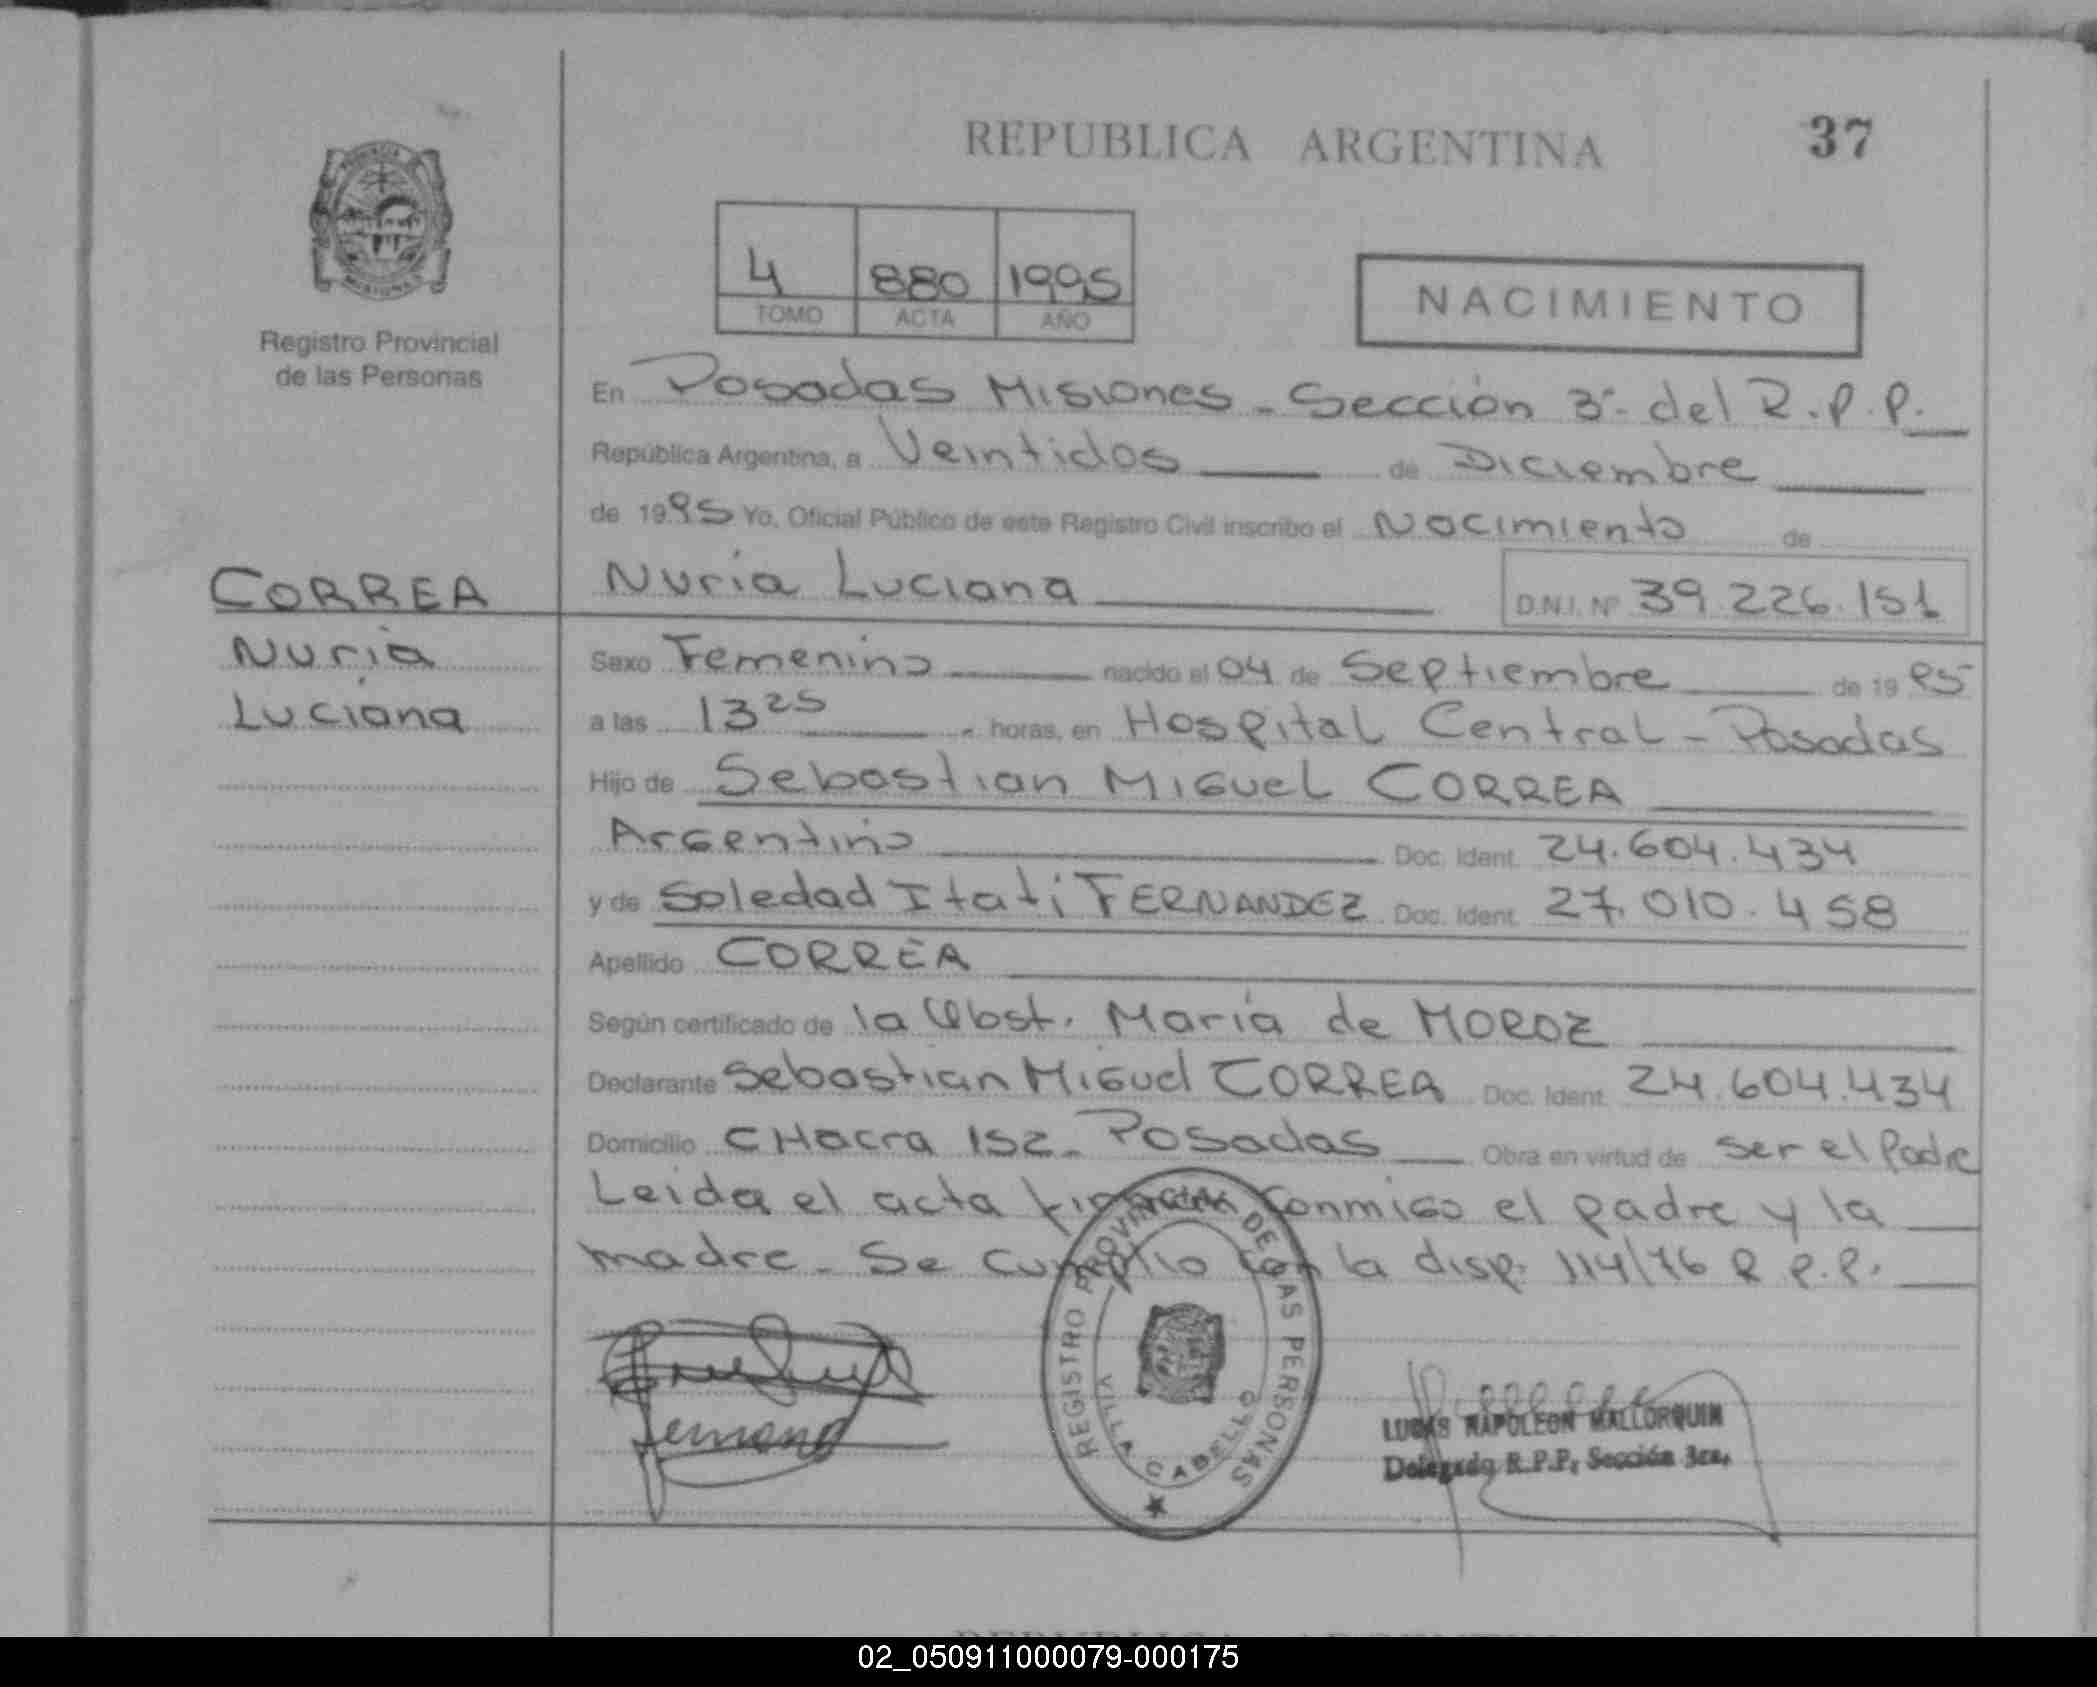 REPUBLICA ARGENTINA 37
4 880 1995
TOMO ACTA AÑO
NACIMIENTO
Registro Provincial
de las Personas
En Posadas Misiones - Sección 3ª del R.P.P.
República Argentina, a Veintidos de Diciembre
de 1995 Yo, Oficial Público de este Registro Civil inscribo el Nacimiento de
CORREA
Nuria
Luciana
Nuria Luciana D.N.I. Nº 39.226.151
Sexo Femenino nacido el 04 de Septiembre de 1995
a las 13 25 horas, en Hospital Central - Posadas
Hijo de Sebastian Miguel CORREA
Argentino Doc. Ident. 24.604.434
y de Soledad Itatí FERNANDEZ Doc. Ident. 27.010.458
Apellido CORREA
Según certificado de la Obst. María de MOROZ
Declarante Sebastian Miguel CORREA Doc. Ident. 24.604.434
Domicilio CHacra 152 - Posadas Obra en virtud de ser el Padre
Leida el acta firman conmigo el padre y la
madre - Se cumplio con la disp. 114/76 R.P.P.
REGISTRO PROVINCIAL DE LAS PERSONAS
VILLA CABELLO
LUCAS NAPOLEON MALLORQUIN
Delegado R.P.P. Sección 3ra.
02_050911000079-000175